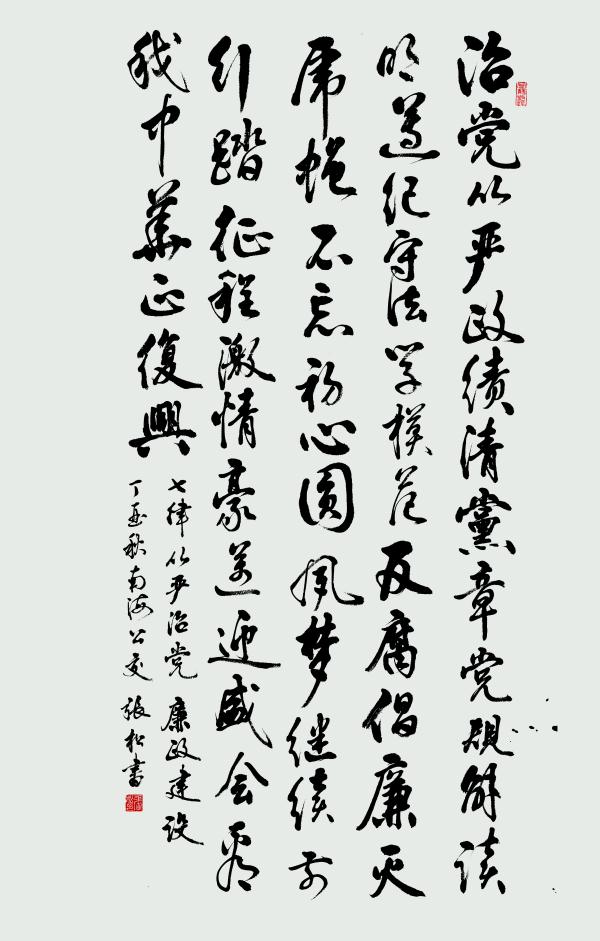 治党以严政绩清黨章党规解读
明遵纪守法学模范反腐倡廉灭
虎蝇不忘初心圆夙梦继续前
行踏征程激情豪迈迎盛会看
我中華正復興
七律以严治党 廉政建设
丁酉秋南海公交 張松書